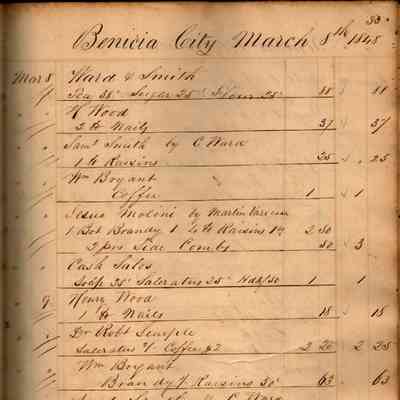 33
Benicia City March 8th 1848
Mar 8 Ward & Smith
Tea 38 Sugar 25 Flour 25 88 88
H Wood
2 lb Nails 37 37
Saml Smith by C Ward
1 lb Raisins 25 25
Wm Bryant
Coffee 1 1
Jesus Molini by Martin
1 Bot Brandy 1 Raisins 2 50
2 prs Side Combs 50 3
Cash Sales
Soap 25 Saleratus 25 Hdkf 50 1 1
9 Henry Wood
1 lb Nails 18 18
Dr Robt Semple
Saleratus Coffee 2 2 25 2 25
Wm Bryant
Brandy Raisins 50 63 63
C Ward